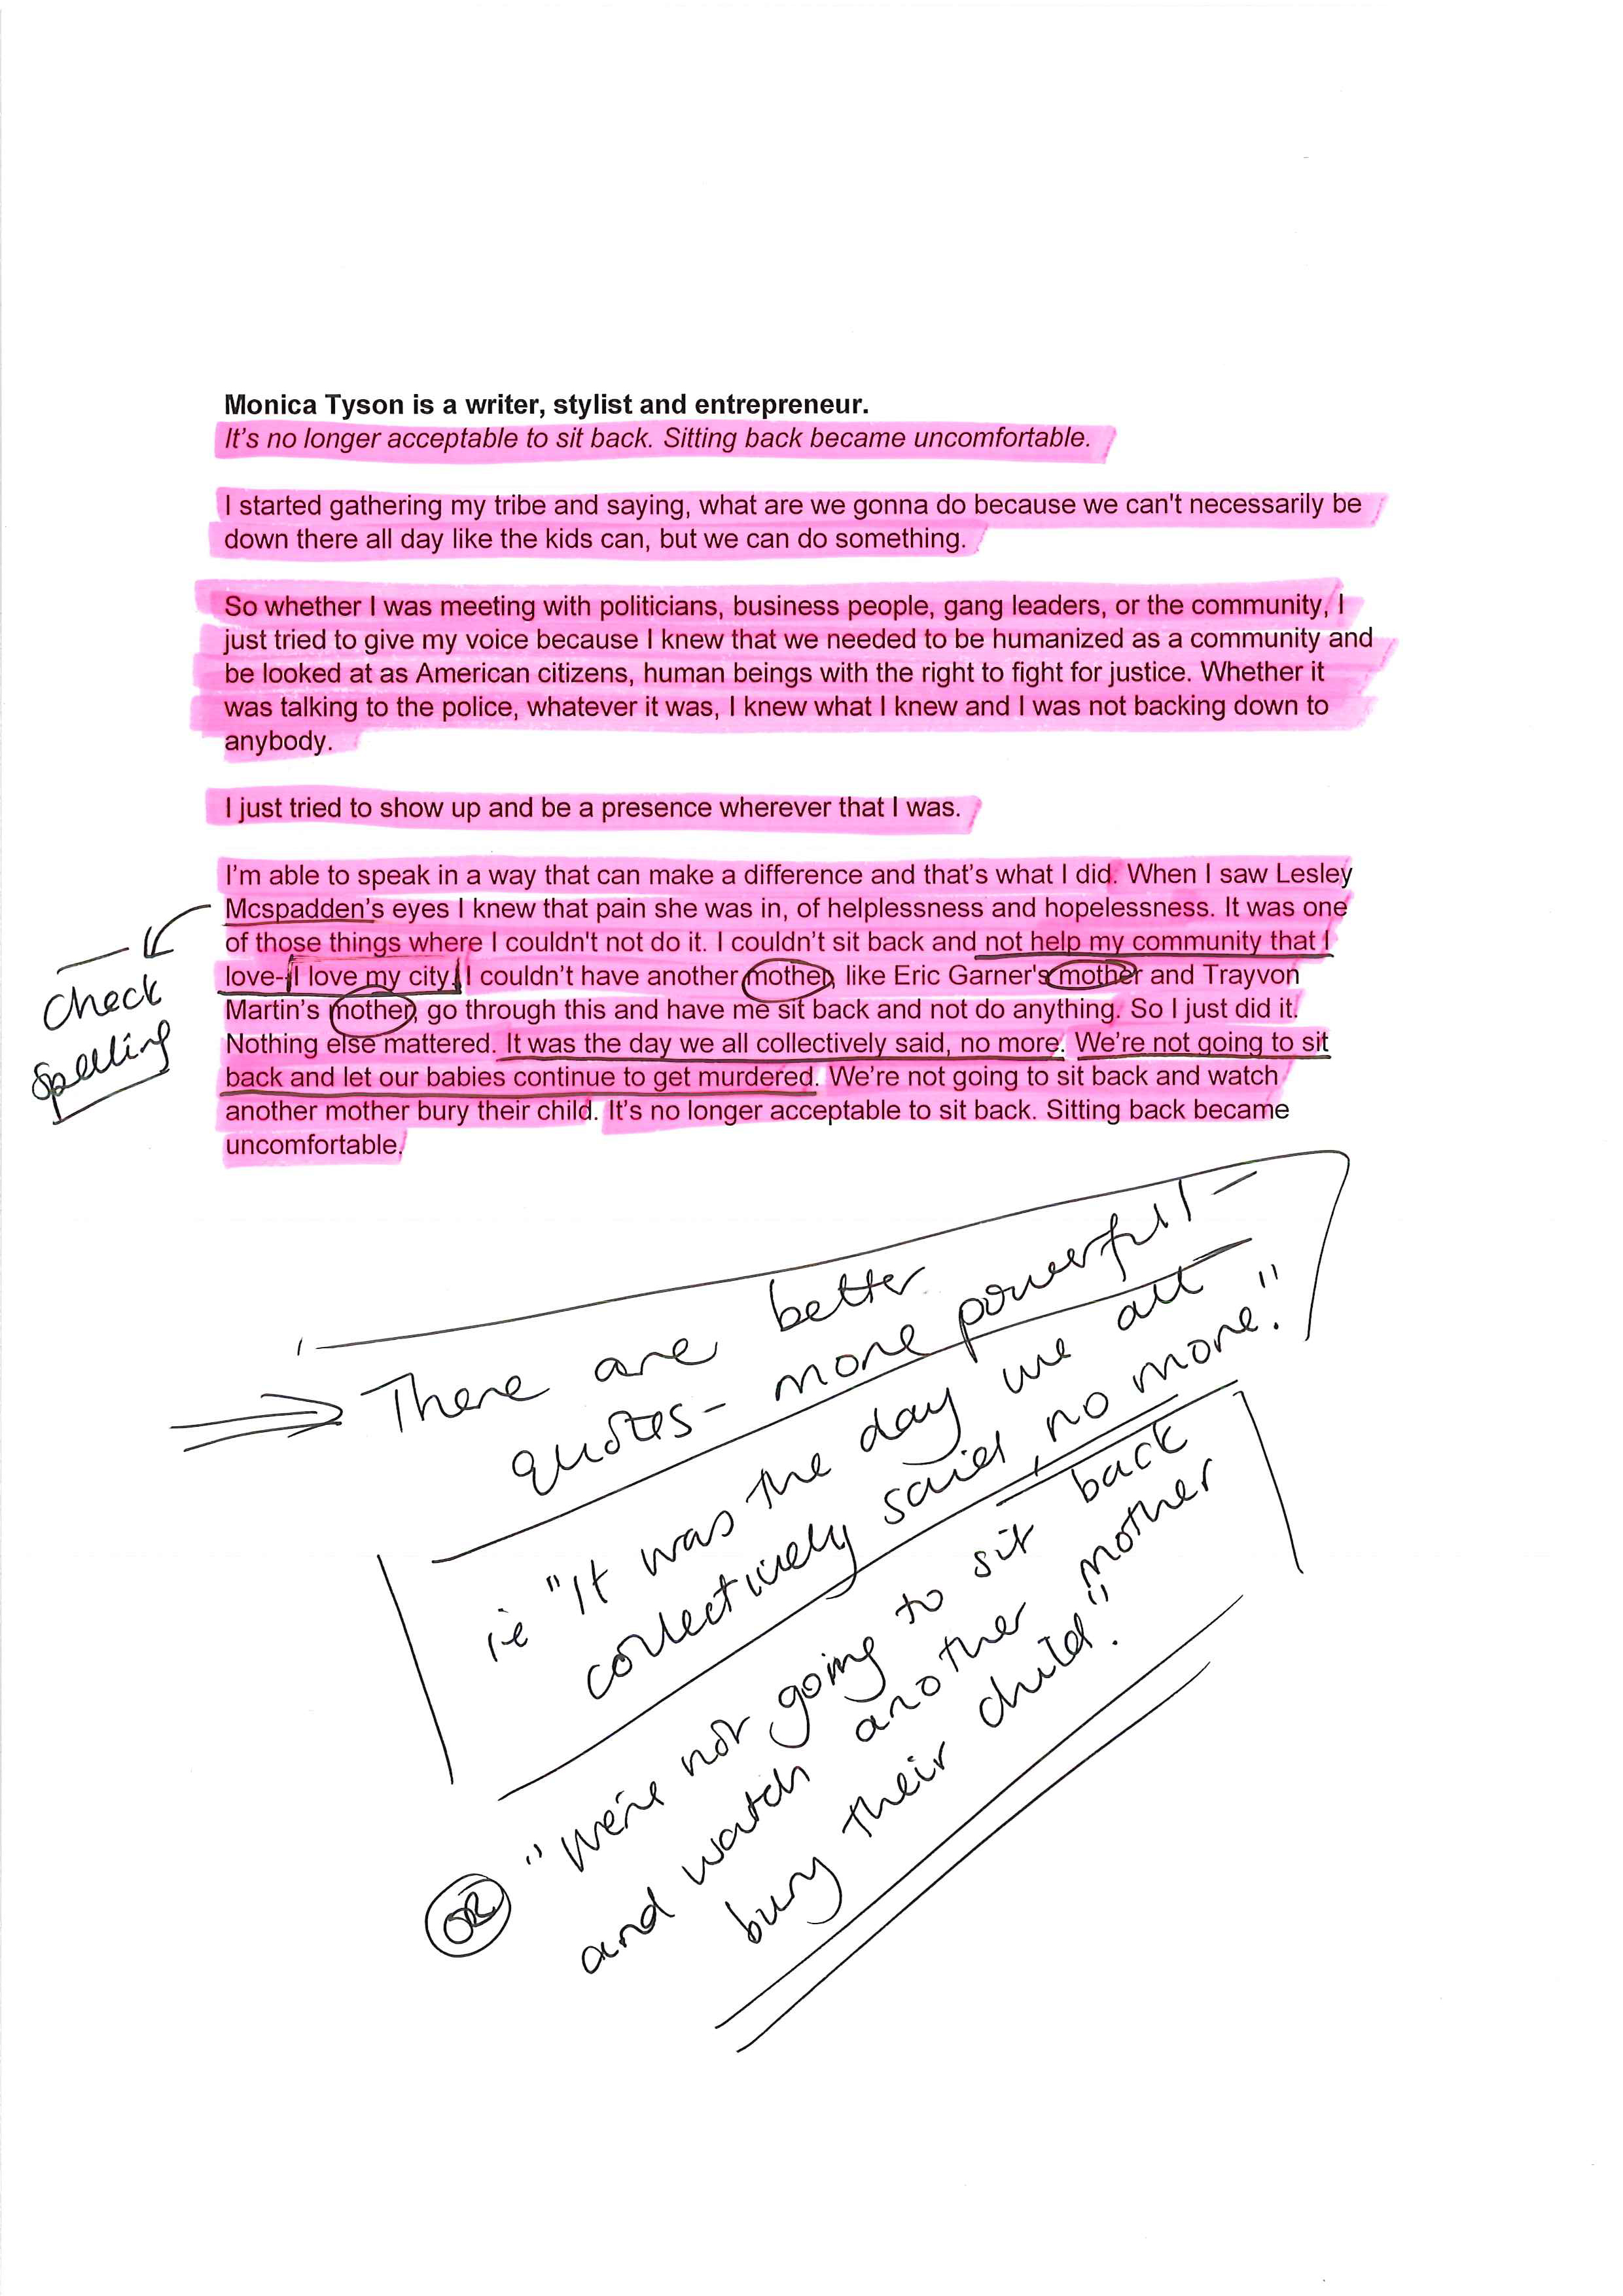 Monica Tyson is a writer, stylist and entrepreneur.
It’s no longer acceptable to sit back. Sitting back became uncomfortable.
I started gathering my tribe and saying, what are we gonna do because we can't necessarily be
down there all day like the kids can, but we can do something.
So whether I was meeting with politicians, business people, gang leaders, or the community, I
just tried to give my voice because I knew that we needed to be humanized as a community and
be looked at as American citizens, human beings with the right to fight for justice. Whether it
was talking to the police, whatever it was, I knew what I knew and I was not backing down to
anybody.
I just tried to show up and be a presence wherever that I was.
I’m able to speak in a way that can make a difference and that’s what I did. When I saw Lesley
Mcspadden’s eyes I knew that pain she was in, of helplessness and hopelessness. It was one
of those things where I couldn't not do it. I couldn’t sit back and not help my community that I
love- I love my city. I couldn’t have another mother, like Eric Garner's mother and Trayvon
Martin’s mother, go through this and have me sit back and not do anything. So I just did it.
Nothing else mattered. It was the day we all collectively said, no more. We’re not going to sit
back and let our babies continue to get murdered. We’re not going to sit back and watch
another mother bury their child. It’s no longer acceptable to sit back. Sitting back became
uncomfortable.
Check
spelling
There are better
quotes - more powerful -
ie "It was the day we all
collectively said, no more."
OR "We're not going to sit back
and watch another mother
bury their child."